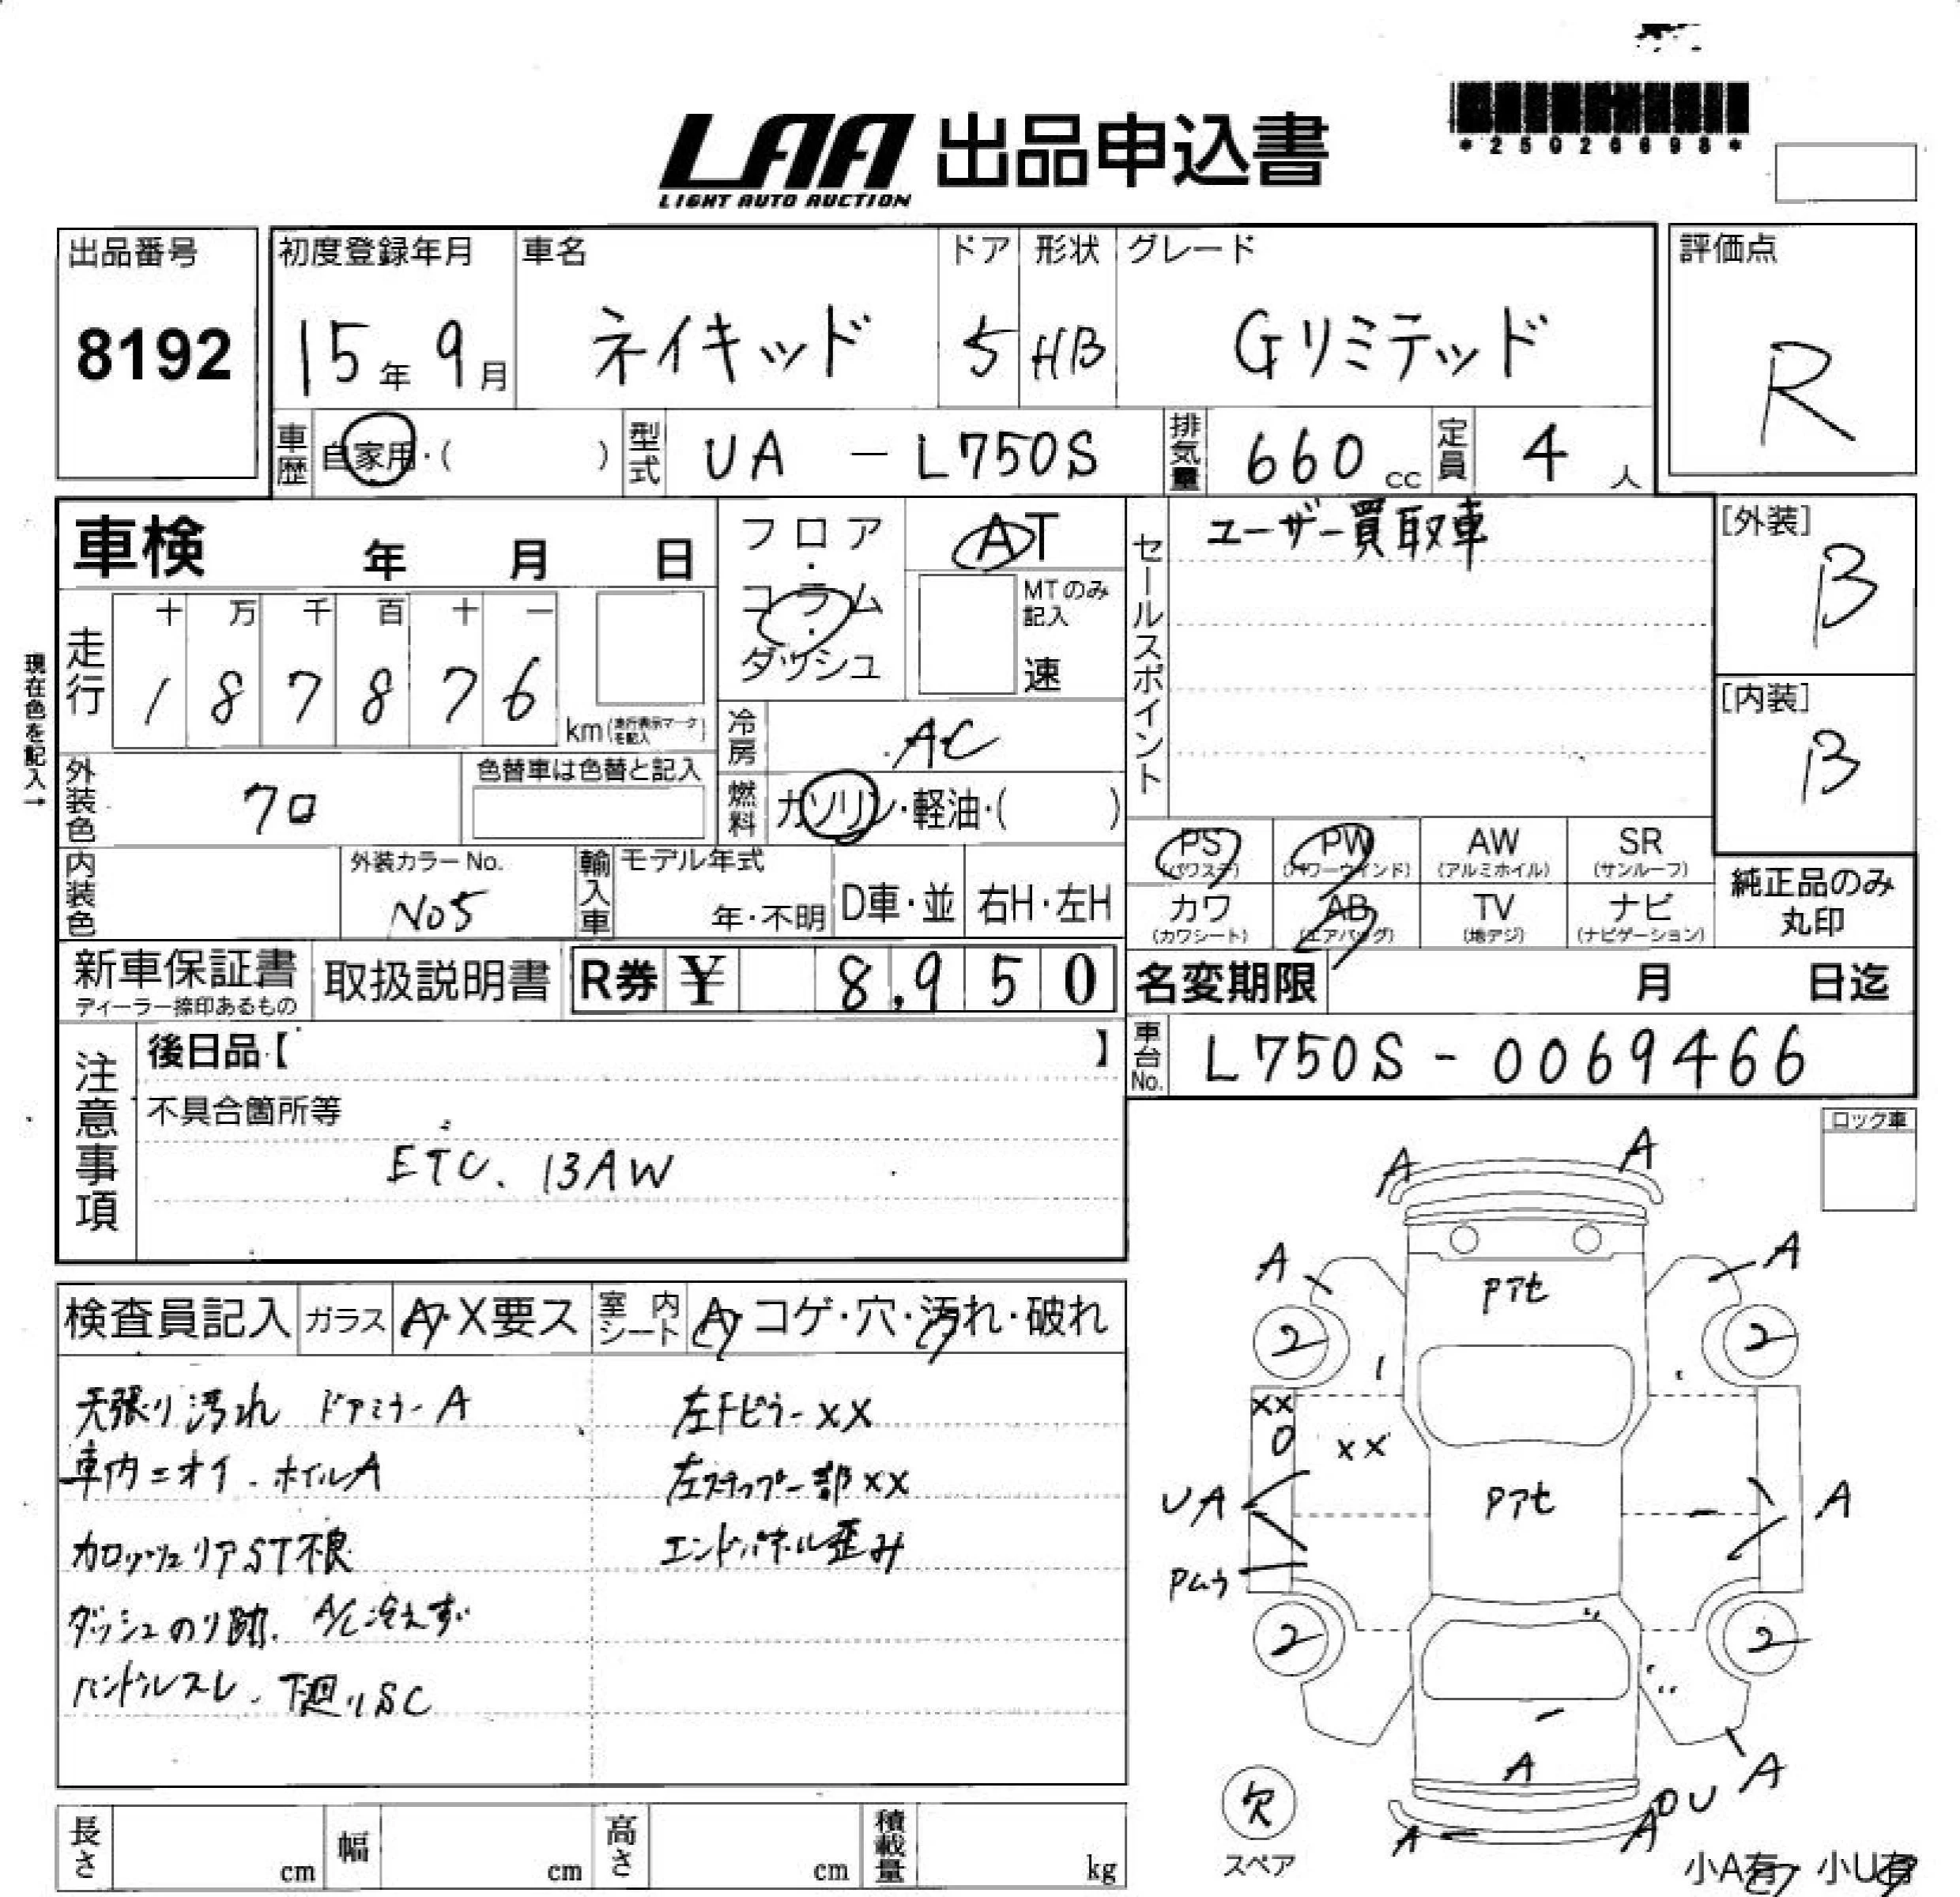 *25026698*
LAA 出品申込書
LIGHT AUTO AUCTION
出品番号 初度登録年月 車名 ドア 形状 グレード 評価点
8192 15年 9月 ネイキッド 5 HB Gリミテッド R
車歴 自家用・( ) 型式 UA - L750S 排気量 660cc 定員 4人
車検 年 月 日
フロア・コラム・ダッシュ
AT
MTのみ記入
速
セールスポイント
ユーザー買取車
[外装]
B
[内装]
B
現在色を記入→
走行
十 万 千 百 十 一
1 8 7 8 7 6
km(走行表示マークを記入)
冷房 AC
外装色 クロ
色替車は色替と記入
燃料 ガソリン・軽油・( )
内装色
外装カラーNo.
No5
輸入車
モデル年式
年・不明
D車・並
右H・左H
PS (パワステ)
PW (パワーウインド)
AW (アルミホイル)
SR (サンルーフ)
カワ (カワシート)
AB (エアバッグ)
TV (地デジ)
ナビ (ナビゲーション)
純正品のみ
丸印
新車保証書
ディーラー捺印あるもの
取扱説明書
R券 ¥ 8,950
名変期限 月 日迄
車台No. L750S - 0069466
注意事項
後日品【 】
不具合箇所等
ETC. 13AW
ロック車
検査員記入 ガラス A・X要ス 室内シート A・コゲ・穴・汚れ・破れ
天張り汚れ ドアミラーA
車内ニオイ. ホイルA
カロッツェリアST不良
ダッシュのり跡. A/C冷えず
ハンドルスレ. 下廻りSC
左Fピラーxx
左ステップ部xx
エンドパネル歪み
A A
A A
Pアセ
2 2
xx
0 xx
UA Pアセ A
Pムラ
2 2
A A
欠
スペア
A A U
小A有 小U有
長さ cm 幅 cm 高さ cm 積載量 kg